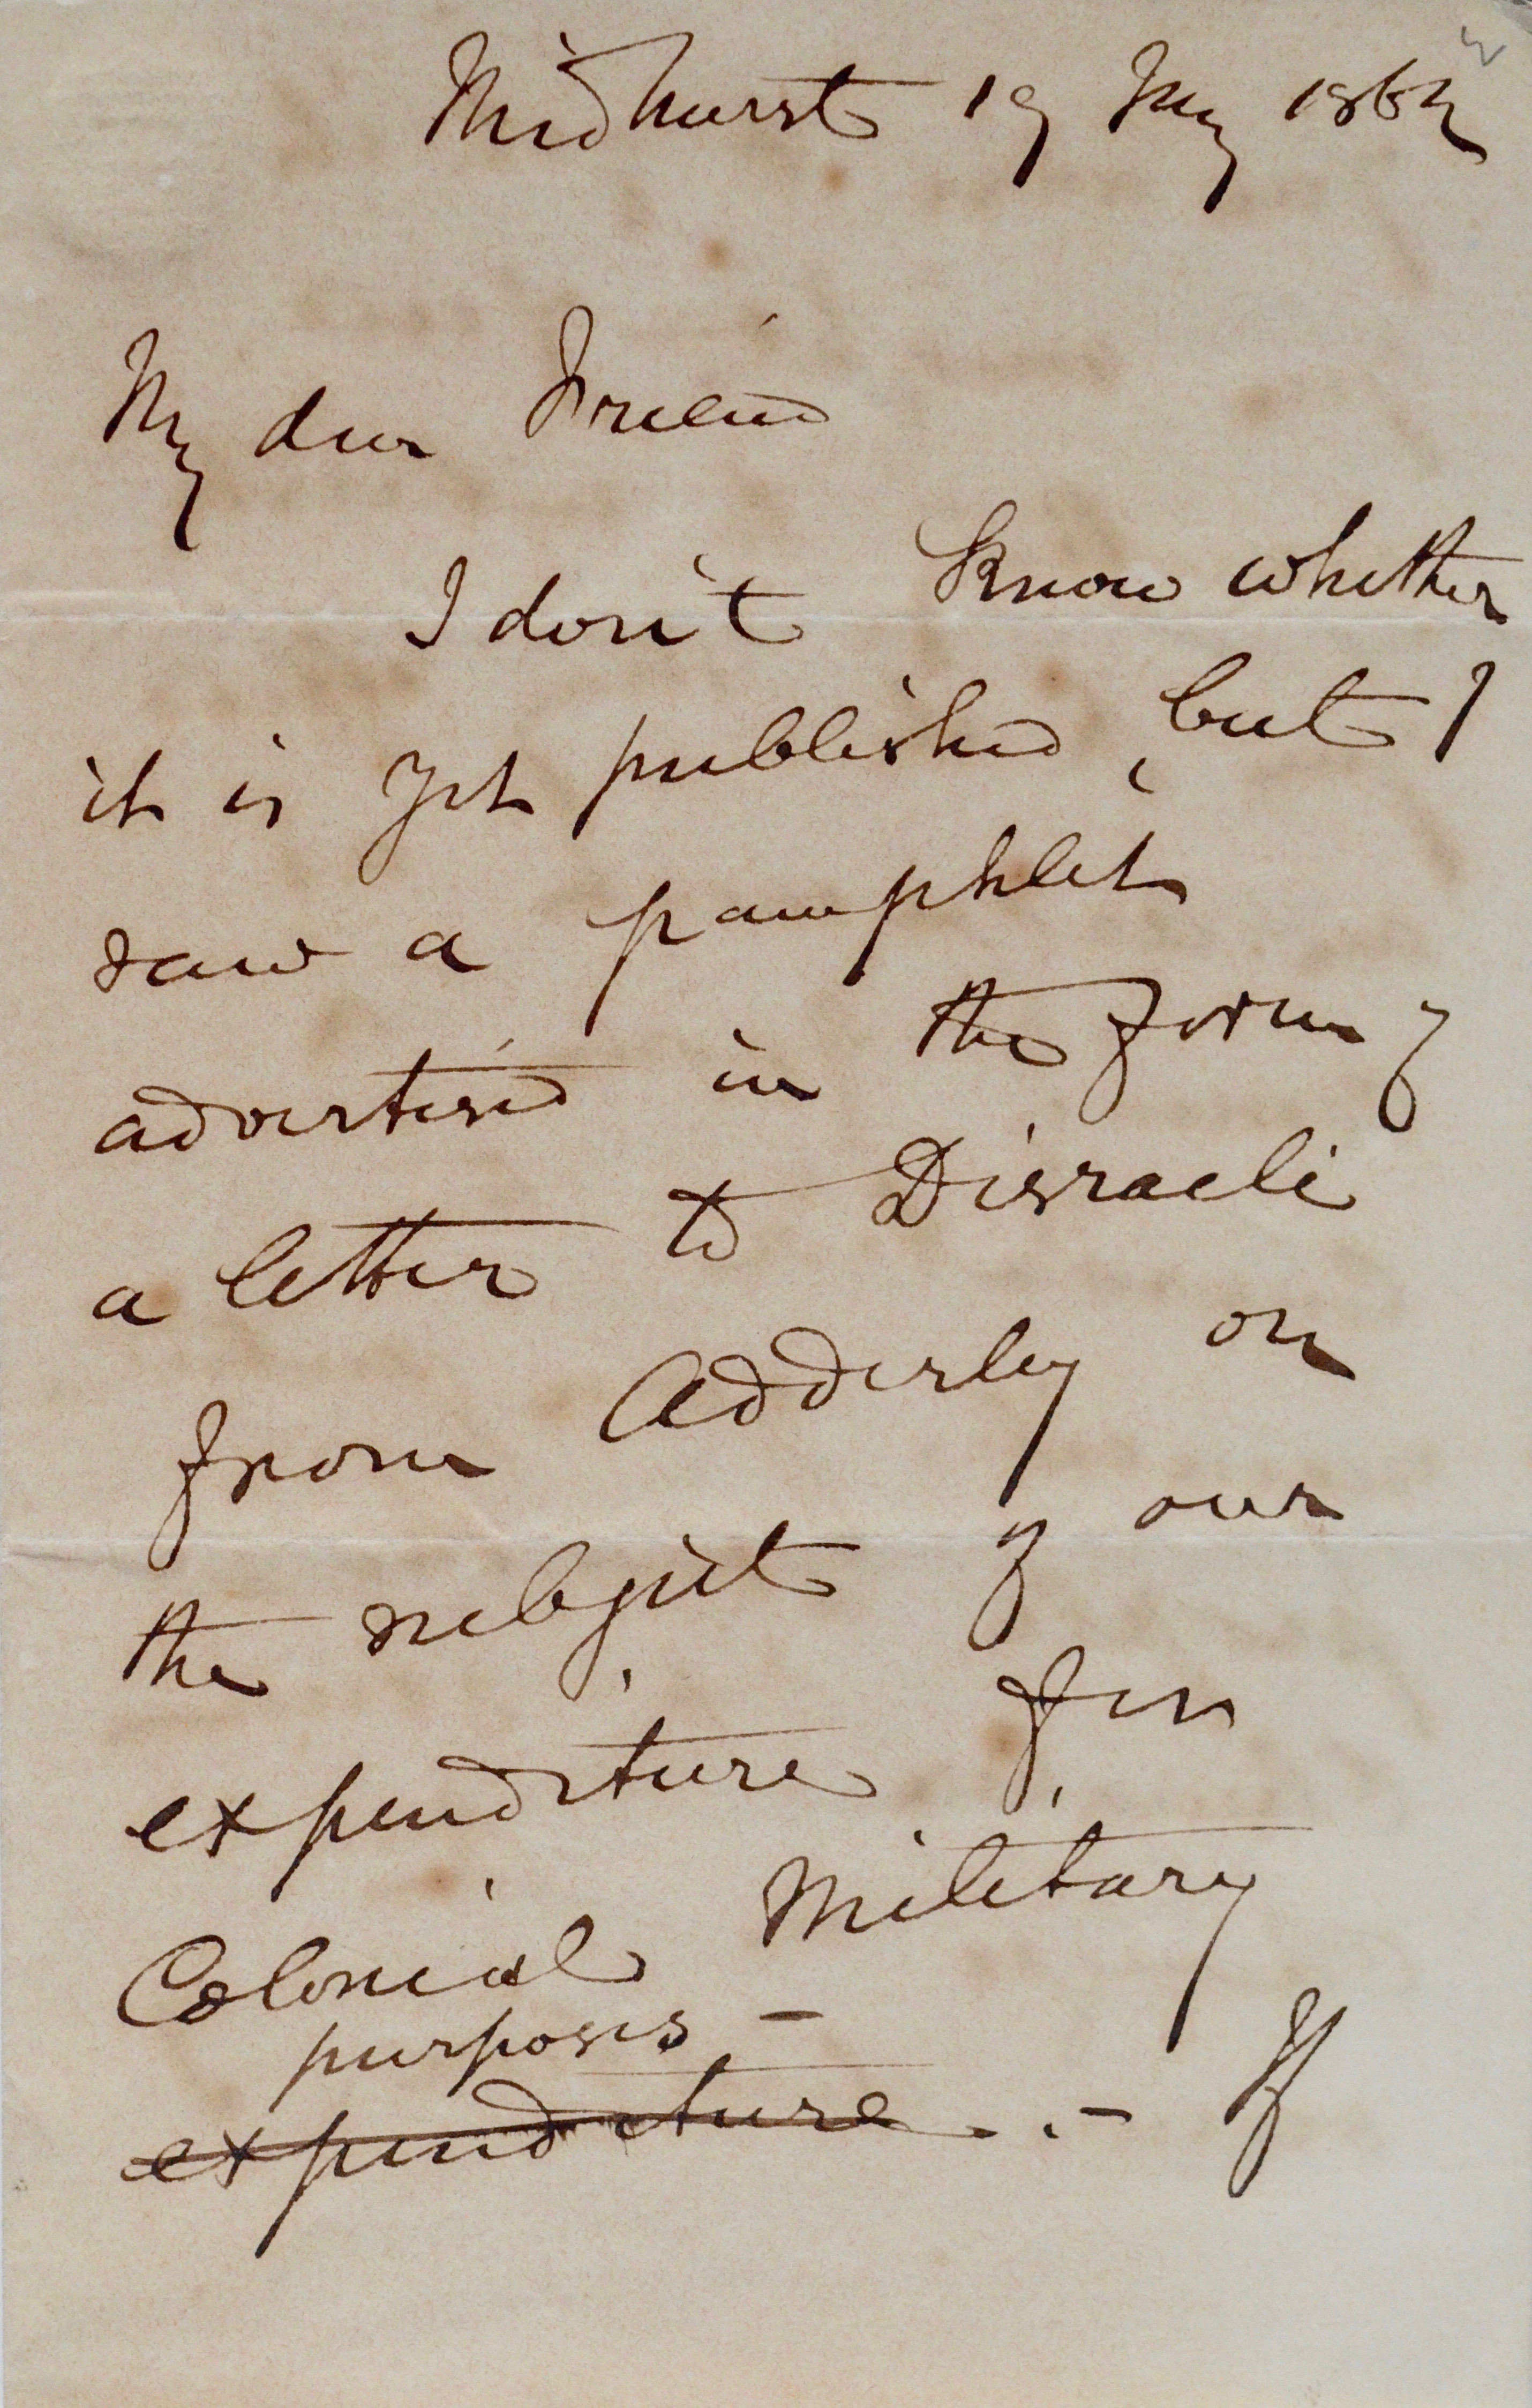 Midhurst 19 Jany 1862
My dear Friend
I don't know whether
it is yet published, but I
saw a pamphlet
advertised in the form of
a letter to Disraeli
from Adderley on
the subject of our
expenditure for
Colonial Military
purposes –
expenditure. – If